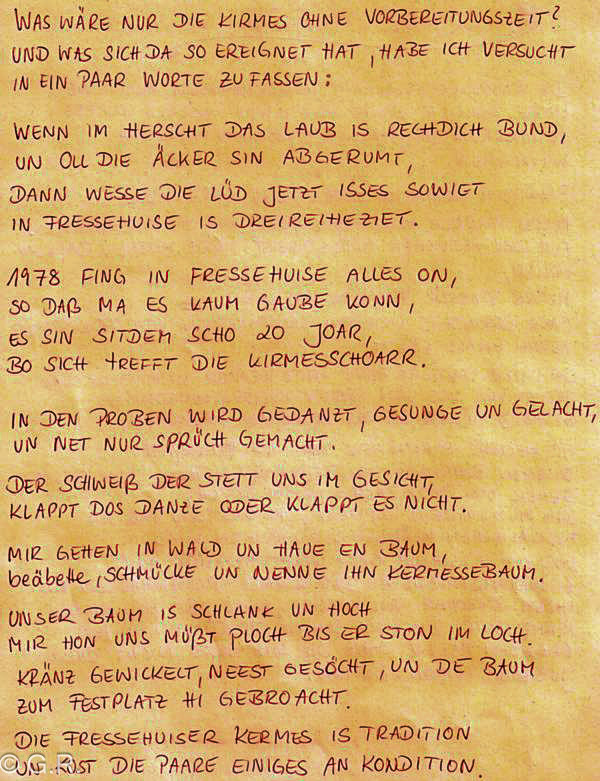 WAS WÄRE NUR DIE KIRMES OHNE VORBEREITUNGSZEIT?
UND WAS SICH DA SO EREIGNET HAT, HABE ICH VERSUCHT
IN EIN PAAR WORTE ZU FASSEN:
WENN IM HERSCHT DAS LAUB IS RECHDICH BUND,
UN OLL DIE ÄCKER SIN ABGERUMT,
DANN WESSE DIE LÜD JETZT ISSES SOWIET
IN FRESSEHUISE IS DREIREIHEZIET.
1978 FING IN FRESSEHUISE ALLES ON,
SO DAß MA ES KAUM GAUBE KONN,
ES SIN SITDEM SCHO 20 JOAR,
BO SICH TREFFT DIE KIRMESSCHOARR.
IN DEN PROBEN WIRD GEDANZT, GESUNGE UN GELACHT,
UN NET NUR SPRÜCH GEMACHT.
DER SCHWEIß DER STETT UNS IM GESICHT,
KLAPPT DOS DANZE ODER KLAPPT ES NICHT.
MIR GEHEN IN WALD UN HAUE EN BAUM,
beäbelle, SCHMÜCKE UN NENNE IHN KERMESSEBAUM.
UNSER BAUM IS SCHLANK UN HOCH
MIR HON UNS MÜßT PLOCH BIS ER STON IM LOCH.
KRÄNZ GEWICKELT, NEEST GESÖCHT, UN DE BAUM
ZUM FESTPLATZ HI GEBROACHT.
DIE FRESSEHUISER KERMES IS TRADITION
UN KOST DIE PAARE EINIGES AN KONDITION.
© G.R.